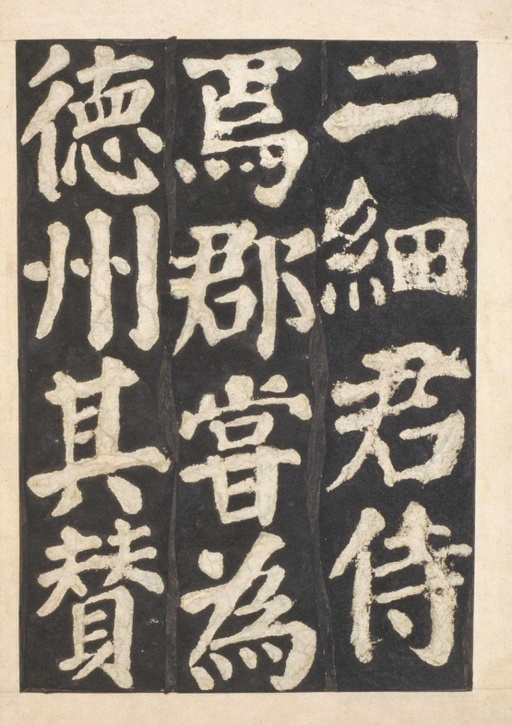 二細君侍
焉郡嘗為
德州其贊